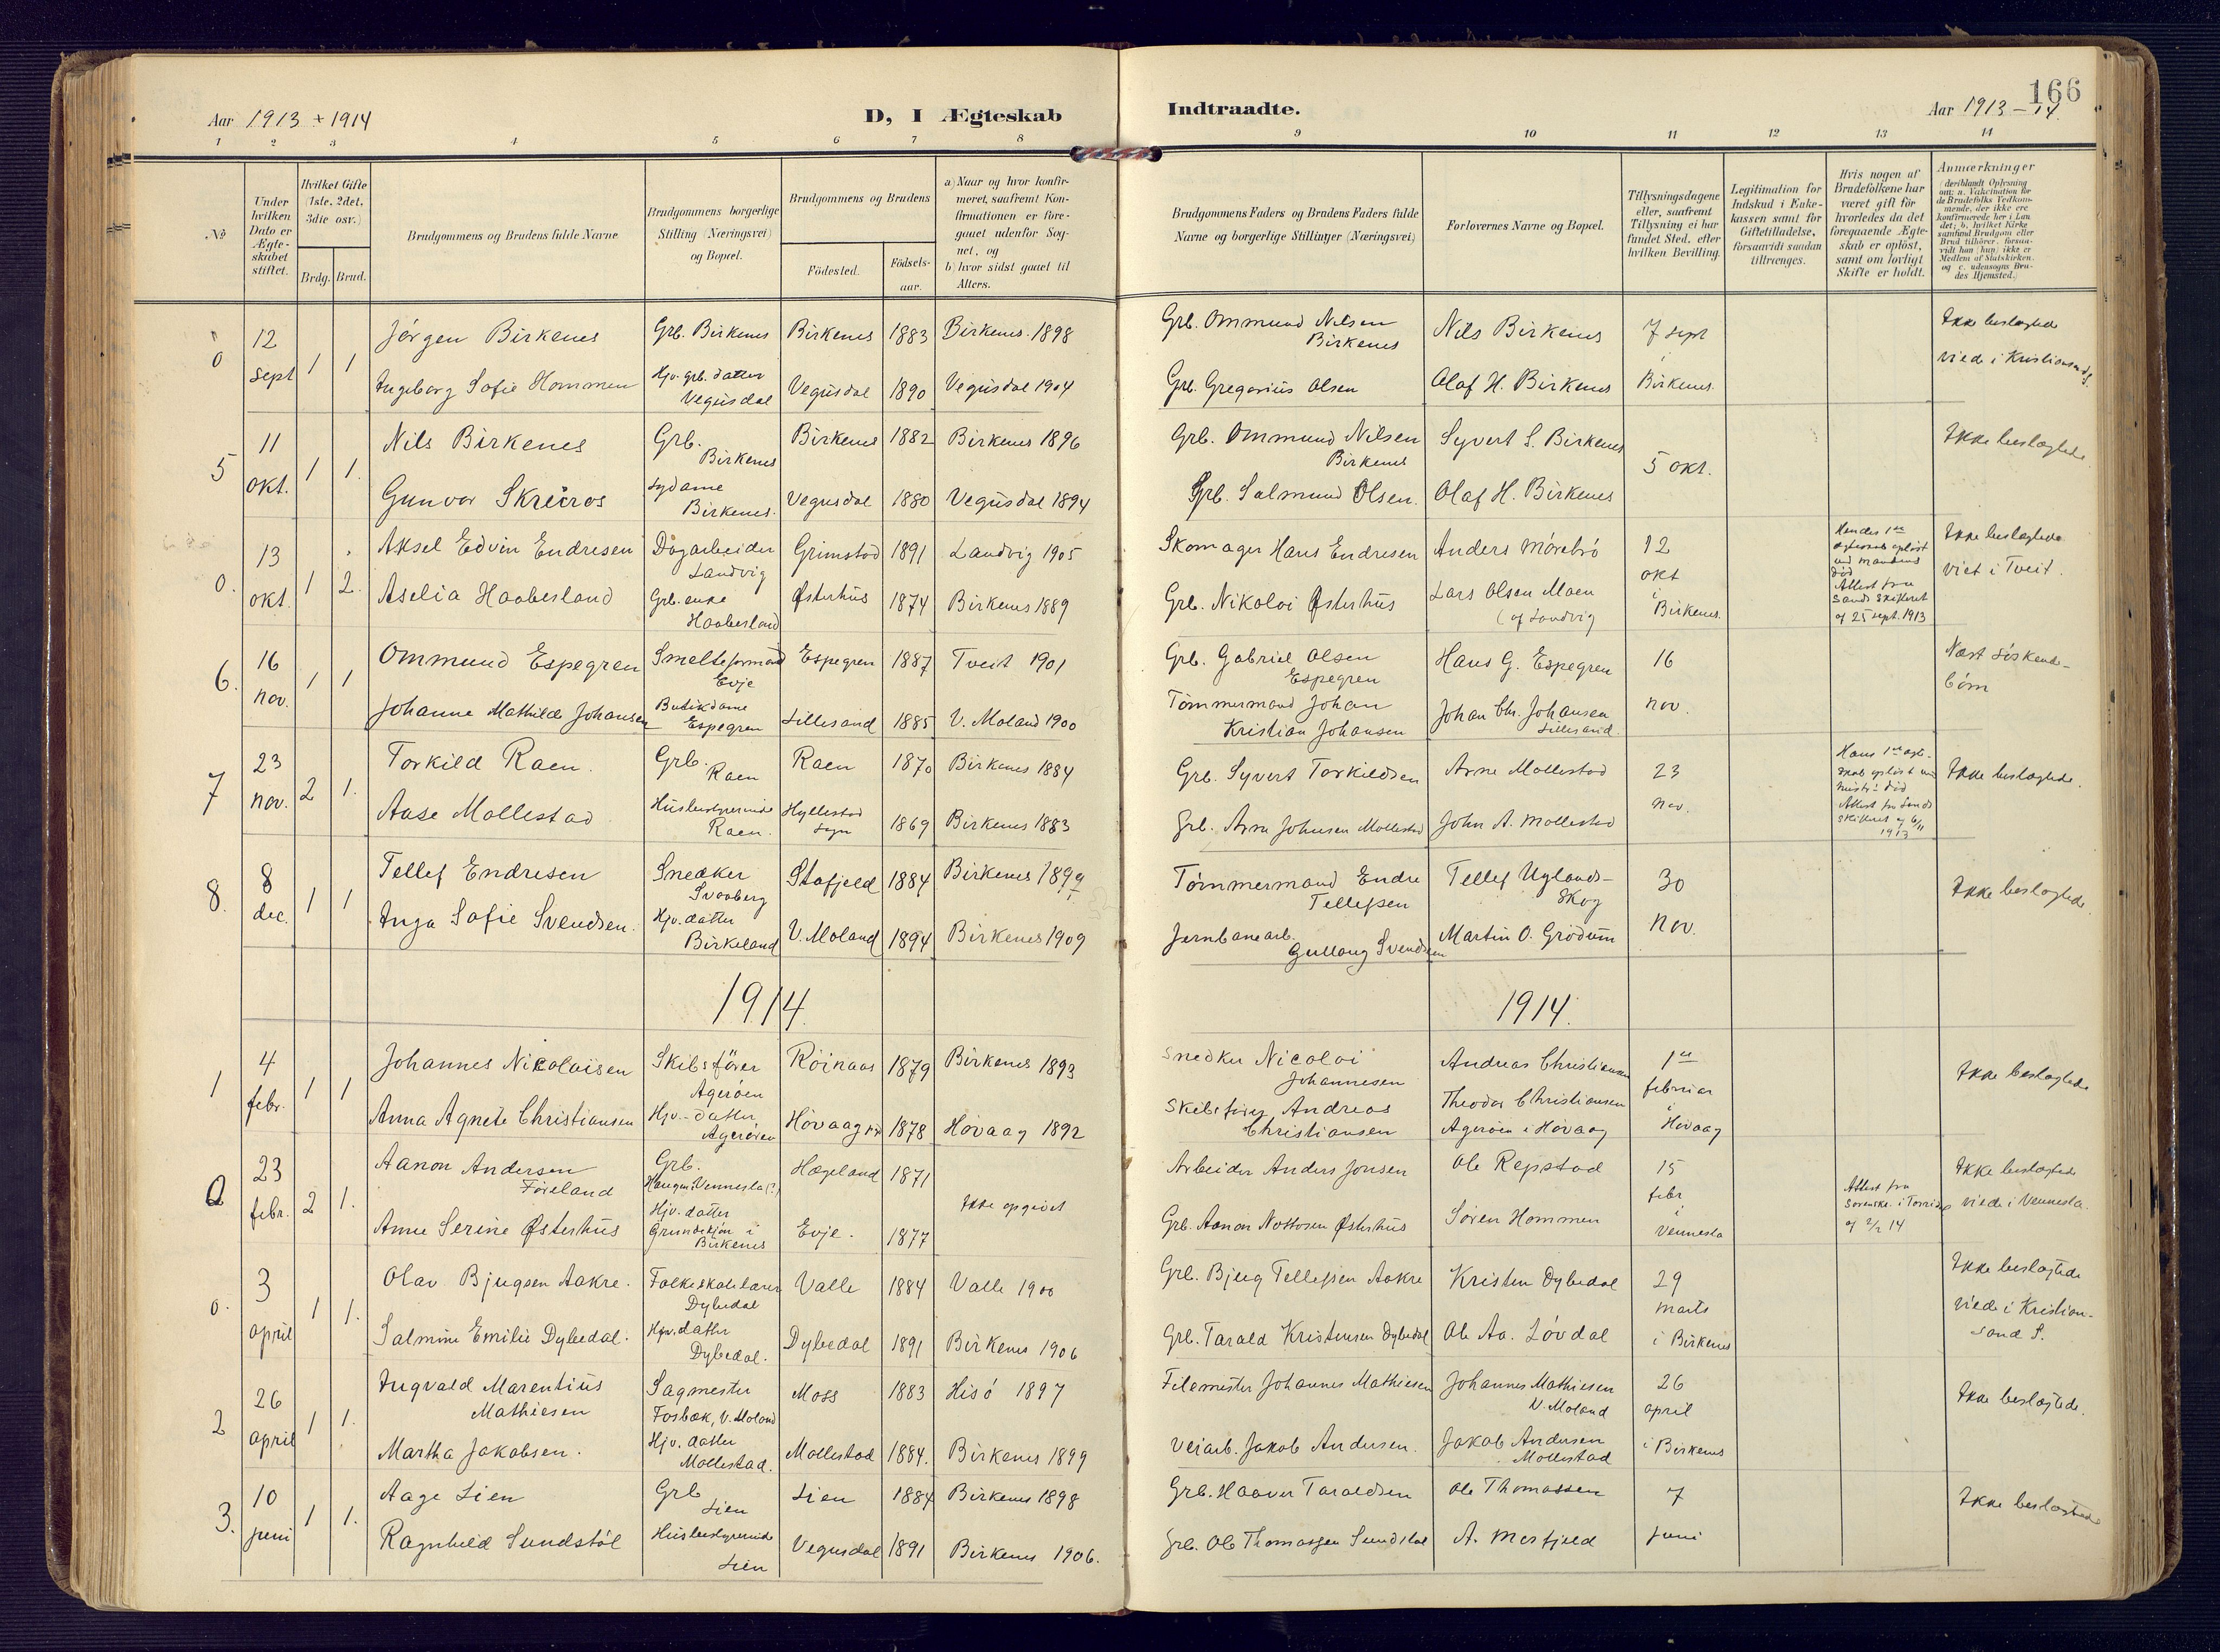 166
Aar 1913 + 1914
D, I Ægteskab
Indtraadte.
Aar 1913-14.
1 2 3 4 5 6 7 8 9 10 11 12 13 14
No
Under hvilken Dato er Ægteskabet stiftet.
Hvilket Gifte (1ste, 2det, 3die osv.)
Brdg. Brud.
Brudgommens og Brudens fulde Navne
Brudgommens borgerlige Stilling (Næringsvei) og Bopæl.
Brudgommens og Brudens
Födested. Födselsaar.
a) Naar og hvor konfirmeret, saafremt Konfirmationen er foregaaet udenfor Sognet, og
b) hvor sidst gaaet til Alters.
Brudgommens Faders og Brudens Faders fulde Navne og borgerlige Stillinger (Næringsvei)
Forlovernes Navne og Bopæl.
Tillysningsdagene eller, saafremt Tillysning ei har fundet Sted, efter hvilken Bevilling.
Legitimation for Indskud i Enkekassen samt for Giftetilladelse, forsaavidt saadan tiltrænges.
Hvis nogen af Brudefolkene har været gift før hvorledes da det foregaaende Ægteskab er opløst, samt om lovligt Skifte er holdt.
Anmærkninger
(deriblandt Oplysning om: a. Vakcination for de Brudefolks Vedkommende, der ikke ere konfirmerede her i Landet; b. hvilket Kirkesamfund Brudgom eller Brud tilhører, forsaavidt han (hun) ikke er Medlem af Statskirken, og c. udensogns Brudes Hjemsted.)
0 12 Sept 1 1
Jörgen Birkenes Grb. Birkenes Birkenes 1883 Birkenes 1898 Grb. Ommund Nilsen Birkenes Nils Birkenes 7 sept i Birkenes Ikke beslægtede
Ingeborg Sofie Hommen Hjv. grb. datter Vegusdal Vegusdal 1890 Vegusdal 1904 Grb. Gregorius Olsen Olaf H. Birkenes viede i Kristiansand S.
5 11 okt. 1 1.
Nils Birkenes Grb. Birkenes Birkenes 1882 Birkenes 1896 Grb. Ommund Nilsen Birkenes Syvert S. Birkenes 5 okt. Ikke beslægtede
Gunvor Skreiros Sydame Birkenes. Vegusdal 1880 Vegusdal 1894 Grb. Salmund Olsen. Olaf H. Birkenes
0. 13 okt. 1 2.
Aksel Edvin Endresen Dagarbeider Landvig Grimstad 1891 Landvig 1905 Skomager Hans Endresen Anders Mörebrö 12 okt i Birkenes. Ikke beslægtede
Aselia Haaberland Grb. enke Haaberland Østerhus 1874 Birkenes 1889 Grb. Nikolai Østerhus Lars Olsen Moen (af Landvig viet i Tveit.
Hendes 1ste ægteskab opløst ved mandens død Attest fra Sands Skifteret af 25 sept. 1913
6. 16 nov. 1 1
Ommund Espegren Smelteformand Evje Espegren 1887 Tveit 1901 Grb. Gabriel Olsen Espegren Hans G. Espegren 16 nov. Næst söskendebörn
Johanne Mathilde Johansen Butikdame Espegren Lillesand 1885 V. Moland 1900 Tömmermand Johan Kristian Johansen Johan Chr. Johansen Lillesand.
7 23 nov. 2 1.
Torkild Raen. Grb. Raen Raen 1870 Birkenes 1884 Grb. Syvert Torkildsen Arne Mollestad 23 nov. Ikke beslægtede.
Aase Mollestad Husbestyrerinde Raen. Hyllestad sogn 1869 Birkenes 1883 Grb. Arne Johnsen Mollestad John A. Mollestad
Hans 1ste ægteskab opløst ved hustrus død Attest fra Sands Skifteret af 6/11 1913
8. 8 dec. 1 1
Tellef Endresen Snedker Svaaberg Stafjeld 1884 Birkenes 1899 Tömmermand Endre Tellefsen Tellef Uglands-Skog 30 nov. Ikke beslægtede.
Inga Sofie Svendsen. Hjv. datter Birkeland V. Moland 1894 Birkenes 1909 Jernbanearb. Gullaug Svendsen Martin O. Grödum
1914. 1914.
1 4 febr. 1 1
Johannes Nicolaisen Skibsförer Ageröen Röinaas 1879 Birkenes 1893 Snedker Nicolai Johannesen Andreas Christiansen 1ste februar i Hövaag Ikke beslægtede
Anna Agnete Christiansen Hjv. datter Ageröen Hövaag 1878 Hövaag 1892 Skibsförer Andreas Christiansen Theodor Christiansen Ageröen i Hövaag
0 23 febr. 2 1.
Aanon Andersen Föreland Grb. Vennesla (?) Hægeland 1871 Ikke opgivet Arbeider Anders Jonsen Ole Repstad 15 febr i Vennesla Ikke beslægtede
Anne Serine Østerhus Hjv. datter i Birkenes Evje. 1877 Grb. Aanon Nottosen Østerhus Sören Hommen viede i Vennesla.
Attest fra Sorenskr. i Torridal af 2/2 14
0. 3 april 1 1.
Olav Bjugsen Aakre. Folkeskolelærer Dybedal Valle 1884 Valle 1900 Grb. Bjug Tellefsen Aakre Kristen Dybedal 29 marts i Birkenes Ikke beslægtede
Salmine Emilie Dybedal. Hjv. datter Dybedal. Dybedal 1891 Birkenes 1906 Grb. Tarald Kristensen Dybedal Ole Aa. Lövdal viede i Kristiansand S.
2 26 april 1 1.
Ingvald Marentius Mathiesen Sagmester Fosbæk, V. Moland Moss 1883 Hisö 1897 Filemester Johannes Mathiesen Johannes Mathiesen V. Moland 26 april i Birkenes Ikke beslægtede.
Martha Jakobsen. Hjv. datter Mollestad. Mollestad 1884. Birkenes 1899 Veiarb. Jakob Andersen. Jakob Andersen Mollestad
3. 10 juni 1 1.
Aage Lien Grb Lien Lien 1884 Birkenes 1898 Grb. Haaver Taraldsen Ole Thomassen 7 juni Ikke beslægtede
Ragnhild Sundstöl Husbestyrerinde Lien Vegusdal 1891 Birkenes 1906. Grb. Ole Thomassen Sundstøl A. Mosfjeld